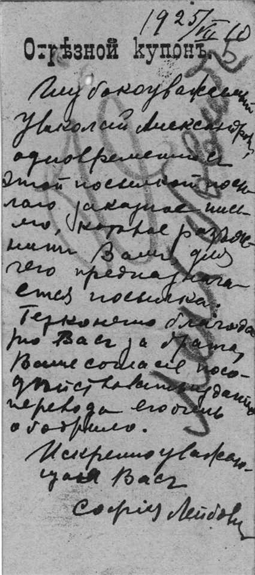 1925/VII 10
Отрѣзной купонъ.
Глубокоуважаемый
Николай Александрович,
одновременно с
этой посылкой посы-
лаю заказное пись-
мо, которое разъяс-
нит Вам для
чего предназнача-
ется посылка.
благода-
рю Вас за брата,
Ваше согласие посо-
действовать
перевода его очень
ободрило.
Искренно уважаю-
щая Вас
София Лейбович